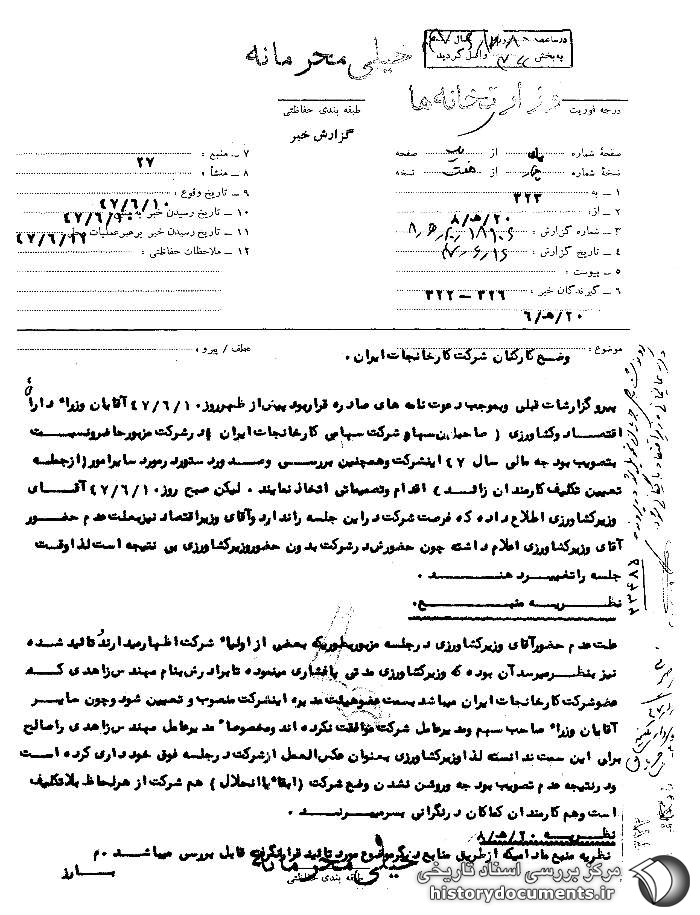 در ساعت
به بخش واصل گردید
خیلی محرمانه
وزارتخانه ها
درجه فوریت
طبقه بندی حفاظتی
گزارش خبر
صفحهٔ شماره یک از یک صفحه
نسخهٔ شماره چهار از هفت نسخه
۱ ـ به ۳۲۳
۲ ـ از: ۲۰/هـ/۸
۳ ـ شماره گزارش :
۴ ـ تاریخ گزارش :
۵ ـ پیوست :
۶ ـ گیرندگان خبر : ۳۲۶ – ۳۲۲
۲۰/هـ/۶
۷ ـ منبع :
۲۷
۸ ـ منشأ :
۹ ـ تاریخ وقوع :
۴۷/۶/۱۰
۱۰ ـ تاریخ رسیدن خبر به منبع
۴۷/۶/۱۰
۱۱ ـ تاریخ رسیدن خبر برهبر عملیات محل
۴۷/۶/۱۲
۱۲ ـ ملاحظات حفاظتی :
موضوع : وضع کارکنان شرکت کارخانجات ایران .
عطف / پیرو :
پیرو گزارشات قبلی وبموجب دعوت نامه های صادره قراربود پیش از ظهرروز ۴۷/۶/۱۰ آقایان وزراء دارائی
اقتصاد وکشاورزی ( صاحبان سهام شرکت سهامی کارخانجات ایران ) در شرکت مزبورحاضرونسبت
بتصویب بودجه مالی سال ۴۷ اینشرکت وهمچنین بررسی وصدوردستوردرمورد سایرامور (ازجمله
تعیین تکلیف کارمندان زائد ) اقدام وتصمیماتی اتخاذ نمایند . لیکن صبح روز ۴۷/۶/۱۰ آقای
وزیرکشاورزی اطلاع داده که فرصت شرکت دراین جلسه راندارد وآقای وزیراقتصاد نیزبعلت عدم حضور
آقای وزیرکشاورزی اعلام داشته چون حضورش درشرکت بدون حضوروزیرکشاورزی بی نتیجه است لذا وقت
جلسه راتغییر دهند .
نظریه منبع.
علت عدم حضورآقای وزیرکشاورزی درجلسه مزبوربطوریکه بعضی از اولیاء شرکت اظهارمیدارند وتائید شده
نیز بنظرمیرسد آن بوده که وزیرکشاورزی مدتی پافشاری مینموده تابرادرش بنام مهندس زاهدی که
عضوشرکت کارخانجات ایران میباشد بسمت عضوهیئت مدیره اینشرکت منصوب و تعیین شود وچون سایر
آقایان وزراء صاحب سهم ومدیرعامل شرکت موافقت نکرده اند ومخصوصاً مدیرعامل مهندس زاهدی راصالح
برای این سمت ندانسته لذا وزیرکشاورزی بعنوان عکس العمل ازشرکت درجلسه فوق خودداری کرده است
ودرنتیجه عدم تصویب بودجه وروشن نشدن وضع شرکت (ابقاء یا انحلال ) هم شرکت از هرلحاظ بلاتکلیف
است وهم کارمندان کماکان درنگرانی بسرمیبرند .
نظریه ۲۰/هـ/۸
نظریه منبع مادامیکه ازطریق منابع دیگرموضوع مورد تائید قرارنگرفته قابل بررسی میباشد . م
خیلی محرمانه
طبقه بندی حفاظتی
بارز
۲۳۴۸۵
مرکز بررسی اسناد تاریخی
historydocuments.ir